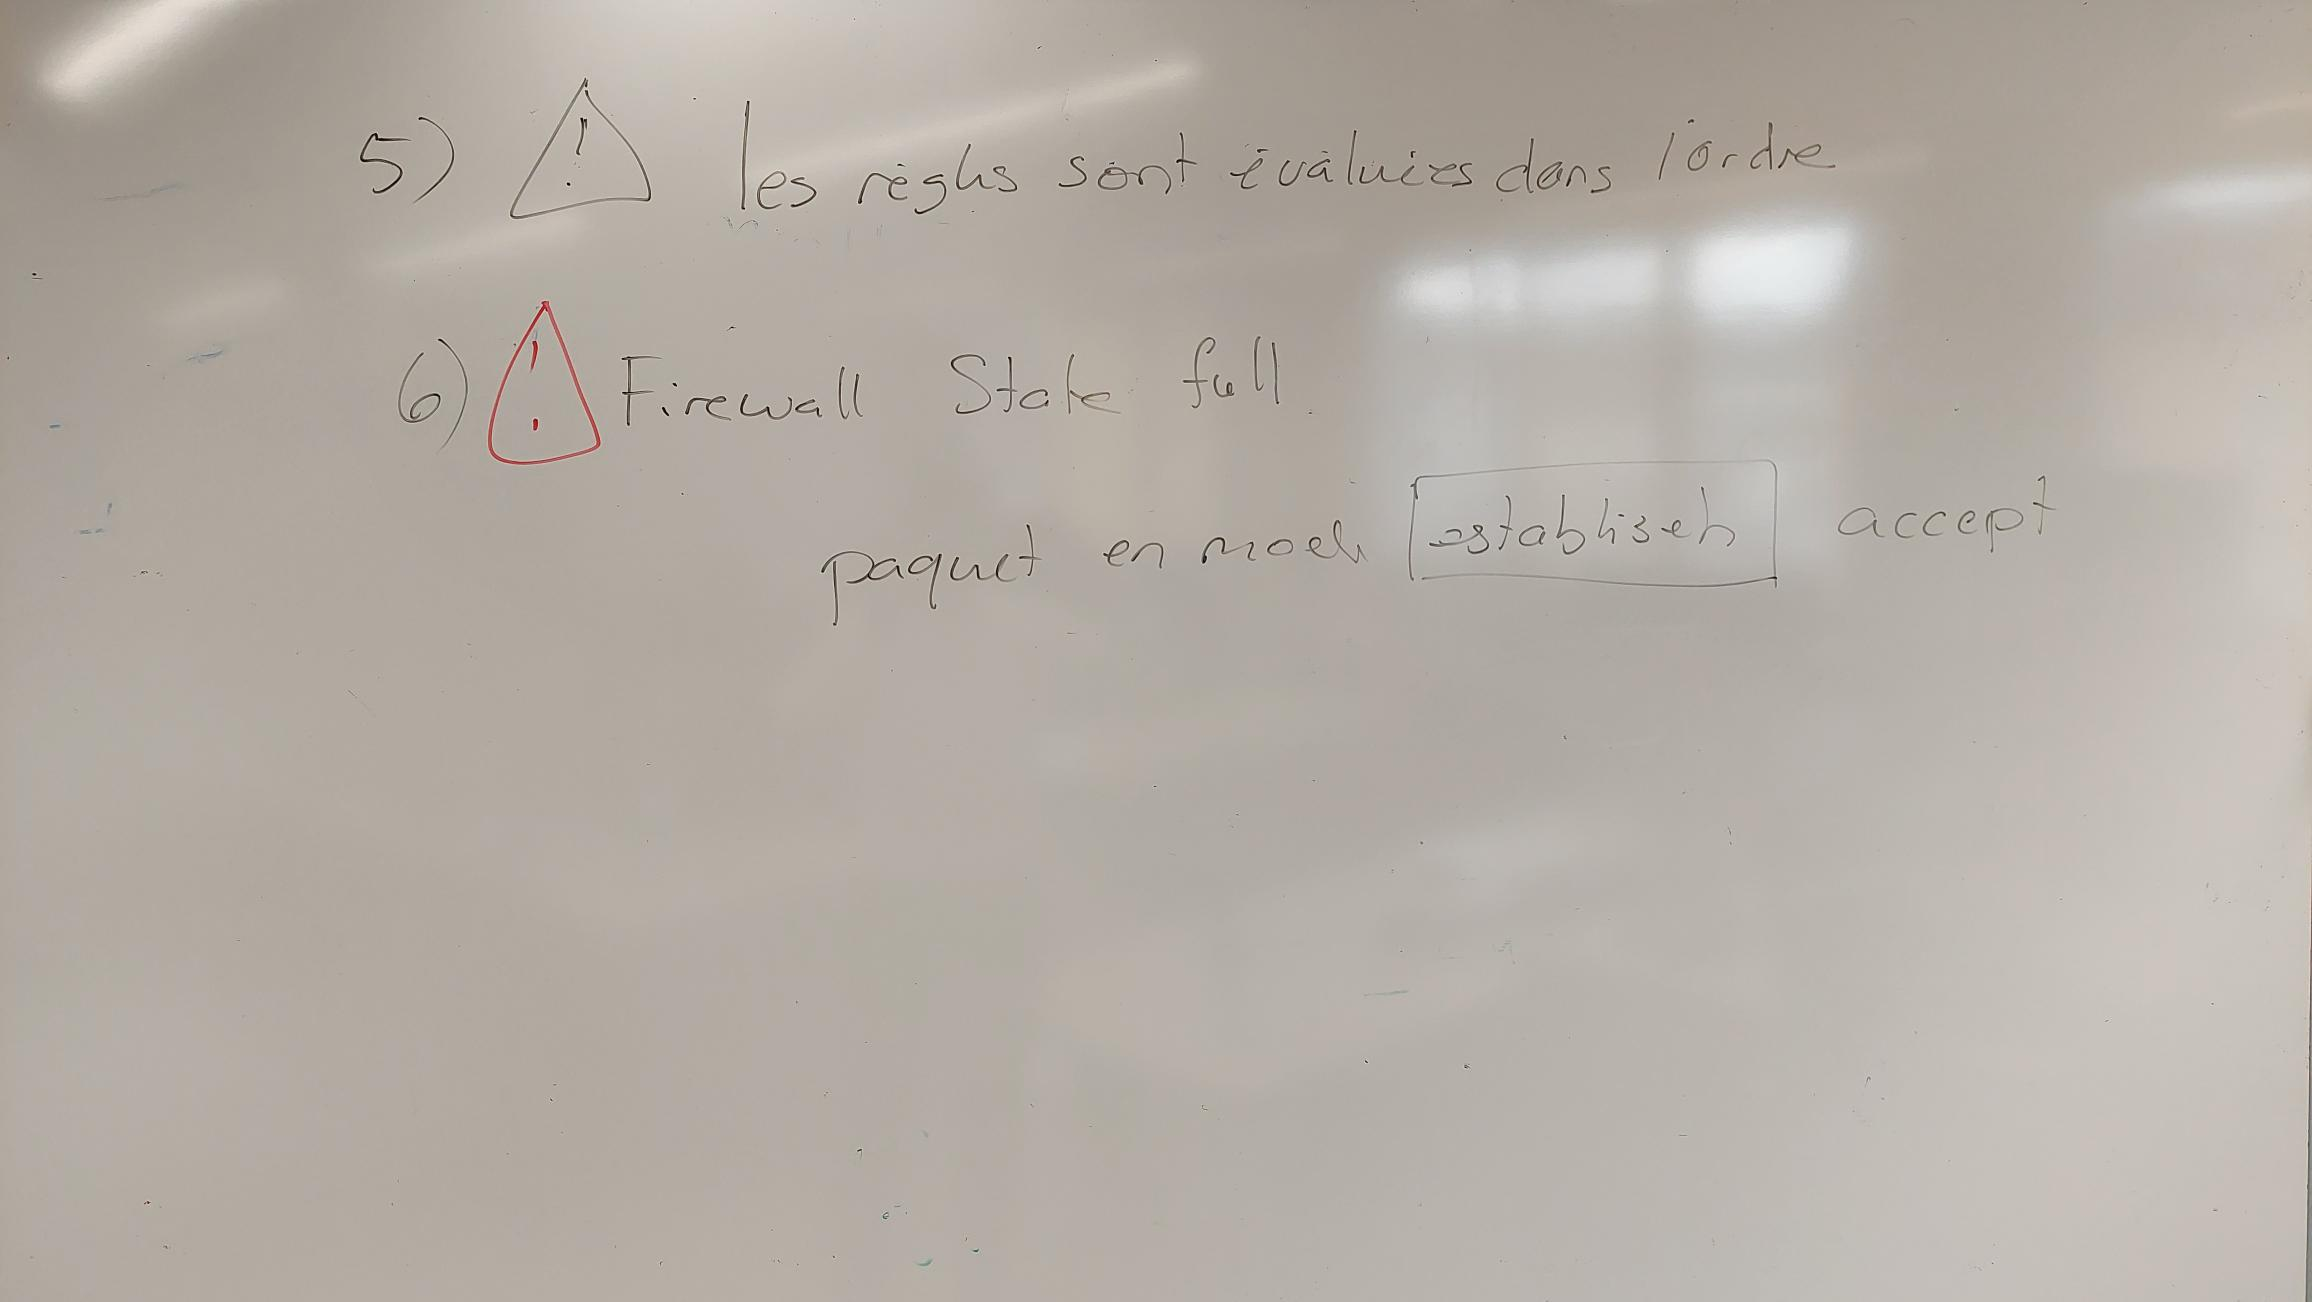 5) ! les règles sont évaluées dans l'ordre
6) ! Firewall State full
paquet en mode establised accept